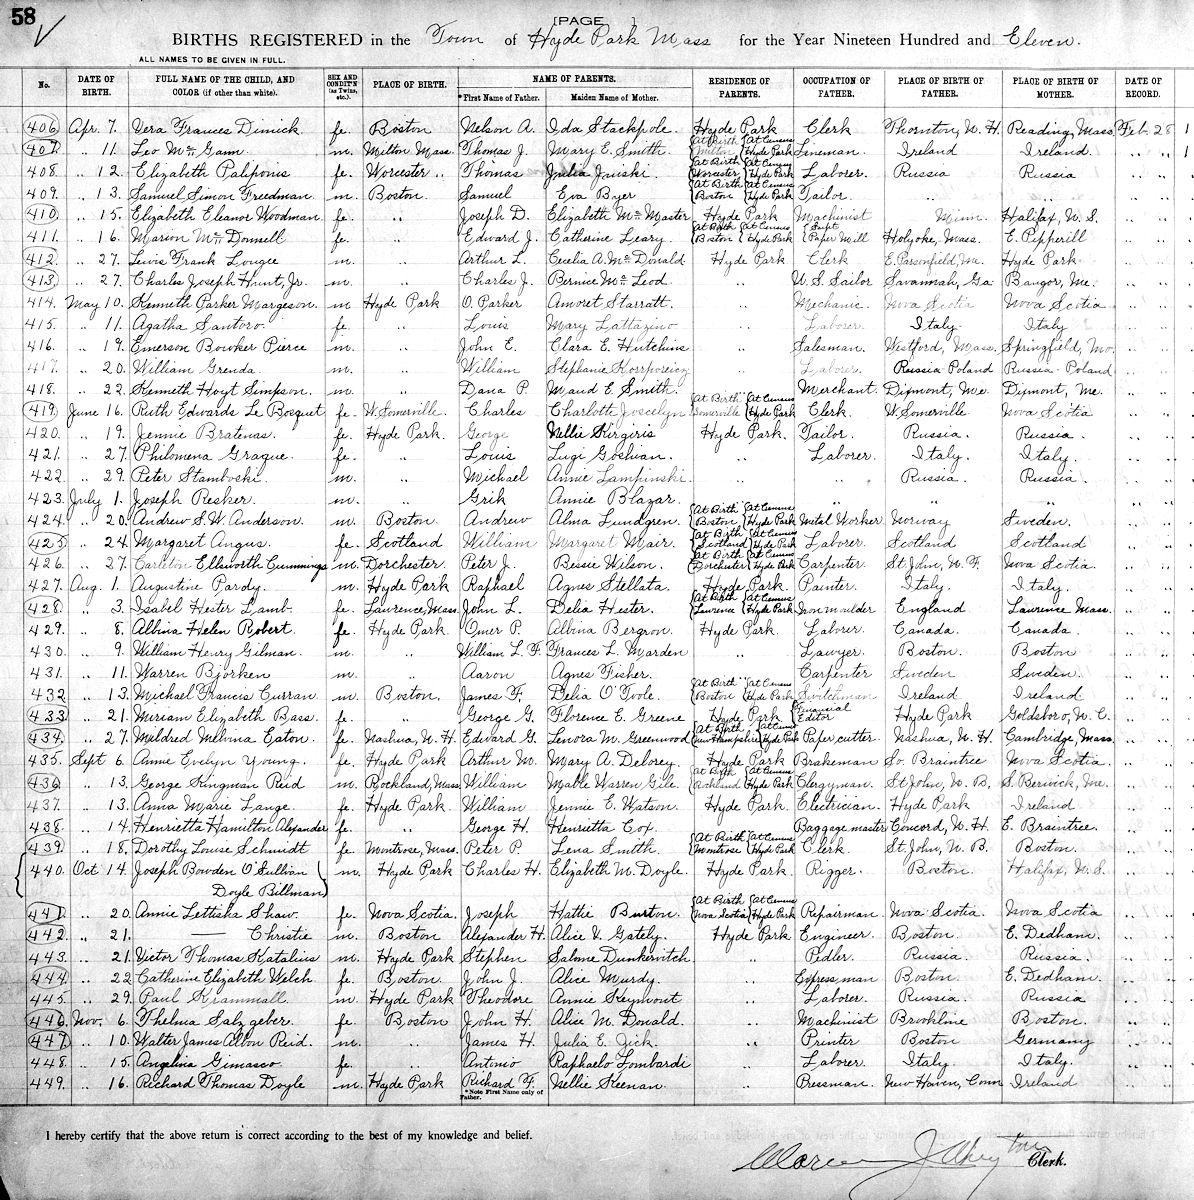 58
[PAGE ]
BIRTHS REGISTERED in the Town of Hyde Park Mass for the Year Nineteen Hundred and Eleven.
ALL NAMES TO BE GIVEN IN FULL.
No. DATE OF BIRTH. FULL NAME OF THE CHILD, AND COLOR (if other than white). SEX AND CONDIT'N (as Twins, etc.). PLACE OF BIRTH. NAME OF PARENTS. *First Name of Father. Maiden Name of Mother. RESIDENCE OF PARENTS. OCCUPATION OF FATHER. PLACE OF BIRTH OF FATHER. PLACE OF BIRTH OF MOTHER. DATE OF RECORD.
406 Apr. 7. Vera Frances Dimick fe. Boston Nelson A. Ida Stackpole. Hyde Park Clerk Thornton, N. H. Reading, Mass. Feb. 28 1
407 " 11. Leo Mc Gann m. Milton Mass. Thomas J. Mary E. Smith. At Birth Milton At Census Hyde Park Lineman Ireland Ireland. " " 1
408. " 12. Elizabeth Paliponis fe. Worcester " Thomas Julia Juiski At Birth Worcester At Census Hyde Park Laborer. Russia Russia " "
409. " 13. Samuel Simon Freedman. m. Boston. Samuel Eva Byer At Birth Boston At Census Hyde Park Tailor. " " " "
410 " 15. Elizabeth Eleanor Woodman. fe. " Joseph D. Elizabeth Mc Master Hyde Park Machinist Minn. Halifax, N. S. " "
411. " 16. Marion Mc Donnell fe. " Edward J. Catherine Leary. At Birth Boston At Census Hyde Park Supt Paper Mill Holyoke, Mass. E. Pepperill " "
412. " 27. Lewis Frank Lougee m. " Arthur L. Cecelia A. Mc Donald Hyde Park Clerk E. Parsonfield, Me. Hyde Park " "
413 " 27. Charles Joseph Hunt, Jr. m. " Charles J. Bernice Mc Leod " U. S. Sailor Savannah, Ga. Bangor, Me. " "
414. May 10. Kenneth Parker Margeson. m. Hyde Park O. Parker Amoret Starratt. " Mechanic Nova Scotia Nova Scotia " "
415. " 11. Agatha Santoro. fe. " Louis Mary Lattazino " Laborer. Italy. Italy " "
416. " 19. Emerson Bowker Pierce m. " John E. Clara E. Hutchins " Salesman. Westford, Mass. Springfield, Mo. " "
417. " 20. William Grenda. m. " William Stephanie " Laborer. Russia-Poland Russia-Poland " "
418. " 22. Kenneth Hoyt Simpson. m. " Dana P. Maud E. Smith. " Merchant. Dixmont, Me. Dixmont, Me. " "
419. June 16. Ruth Edwards Le Bosquet fe. W. Somerville. Charles Charlotte Joscelyn At Birth Somerville At Census Hyde Park Clerk. W. Somerville Nova Scotia " "
420. " 19. Jennie Bratenas. fe. Hyde Park. George Nellie Kirgiris Hyde Park. Tailor. Russia. Russia. " "
421. " 27. Philomena Grague. fe. " Louis Lugi " Laborer. Italy. Italy. " "
422. " 29. Peter Stamboski. m. " Michael Annie Lampinski. " " Russia. Russia. " "
423. July 1. Joseph Resker. m. " Grik Annie Blazar. " " " " " "
424. " 20. Andrew S. W. Anderson. m. Boston. Andrew Alma Lundgren. At Birth Boston At Census Hyde Park Metal Worker Norway Sweden. " "
425 " 24. Margaret Angus. fe. Scotland William Margaret Mair. At Birth Scotland At Census Hyde Park Laborer. Scotland Scotland " "
426. " 27. Carleton Ellsworth Cummings m. Dorchester. Peter J. Bessie Wilson. At Birth Dorchester At Census Hyde Park Carpenter St John, N. F. Nova Scotia. " "
427. Aug. 1. Augustine Pardy. m. Hyde Park Raphael Agnes Stellata. Hyde Park. Painter. Italy. Italy. " "
428. " 3. Isabel Hester Lamb. fe. Lawrence, Mass. John L. Delia Hester. At Birth Lawrence At Census Hyde Park Iron moulder England Lawrence Mass. " "
429. " 8. Albina Helen Robert. fe. Hyde Park Omer P. Albina Bergron. Hyde Park. Laborer. Canada. Canada. " "
430. " 9. William Henry Gilman. m. " William L. F. Frances L. Marden " Lawyer. Boston. Boston. " "
431. " 11. Warren Bjorken m. " Aaron Agnes Fisher. " Carpenter Sweden Sweden. " "
432. " 13. Michael Francis Curran. m. Boston. James F. Delia O'Toole. At Birth Boston At Census Hyde Park Switchman Ireland Ireland. " "
433. " 21. Miriam Elizabeth Bass. fe. " George G. Florence E. Greene Hyde Park Financial Editor Hyde Park Goldsboro, N. C. " "
434. " 27. Mildred Melvina Eaton. fe. Nashua, N. H. Edward G. Lenora M. Greenwood At Birth New Hampshire At Census Hyde Park Paper cutter. Nashua, N. H. Cambridge, Mass. " "
435. Sept 6. Annie Evelyn Young. fe. Hyde Park Arthur W. Mary A. Delorey. Hyde Park Brakeman So. Braintree Nova Scotia. " "
436. " 13. George Kingman Reid m. Rockland, Mass. William Mable Warren Gile. At Birth Rockland At Census Hyde Park Clergyman. St John, N. B. S. Berwick, Me. " "
437. " 13. Anna Marie Lange. fe. Hyde Park. William Jennie E. Watson. Hyde Park. Electrician. Hyde Park Ireland " "
438. " 14. Henrietta Hamilton Alexander fe. " George H. Henrietta Cox. " Baggage master Concord, N. H. E. Braintree. " "
439 " 18. Dorothy Louise Schmidt fe. Montrose, Mass. Peter P. Lena Smith. At Birth Montrose At Census Hyde Park Clerk St. John, N. B. Boston. " "
440. Oct 14. Joseph Bowden O'Sullivan m. Hyde Park Charles H. Elizabeth M. Doyle. Hyde Park. Rigger. Boston. Halifax, N. S. " "
Doyle Billman
441. " 20. Annie Lettisha Shaw. fe. Nova Scotia. Joseph Hattie Burton. At Birth Nova Scotia At Census Hyde Park Repairman. Nova Scotia. Nova Scotia " "
442. " 21. — Christie m. Boston Alexander H. Alice V. Gately. Hyde Park Engineer Boston E. Dedham. " "
443. " 21. Victor Thomas Katalius m. Hyde Park Stephen Salome Dunkervitch " Pidler. Russia. Russia. " "
444. " 22. Catherine Elizabeth Welch fe. Boston. John J. Alice Murdy. " Express man Boston. E. Dedham. " "
445. " 29. Paul Krammall m. Hyde Park Theodore Annie Keymont " Laborer. Russia. Russia " "
446. Nov. 6. Thelma Salzgeber. fe. Boston John H. Alice M. Donald. " Machinist Brookline Boston. " "
447. " 10. Walter James Albon Reid. m. " James H. Julia E. Zick. " Printer Boston Germany " "
448. " 15. Angelina Gimasco. fe. " Antonio Raphaelo Lombardi " Laborer. Italy. Italy. " "
449. " 16. Richard Thomas Doyle m. Hyde Park Richard F. Nellie Keenan. " Pressman. New Haven, Conn Ireland " "
*Note First Name only of Father.
I hereby certify that the above return is correct according to the best of my knowledge and belief.
Clerk.